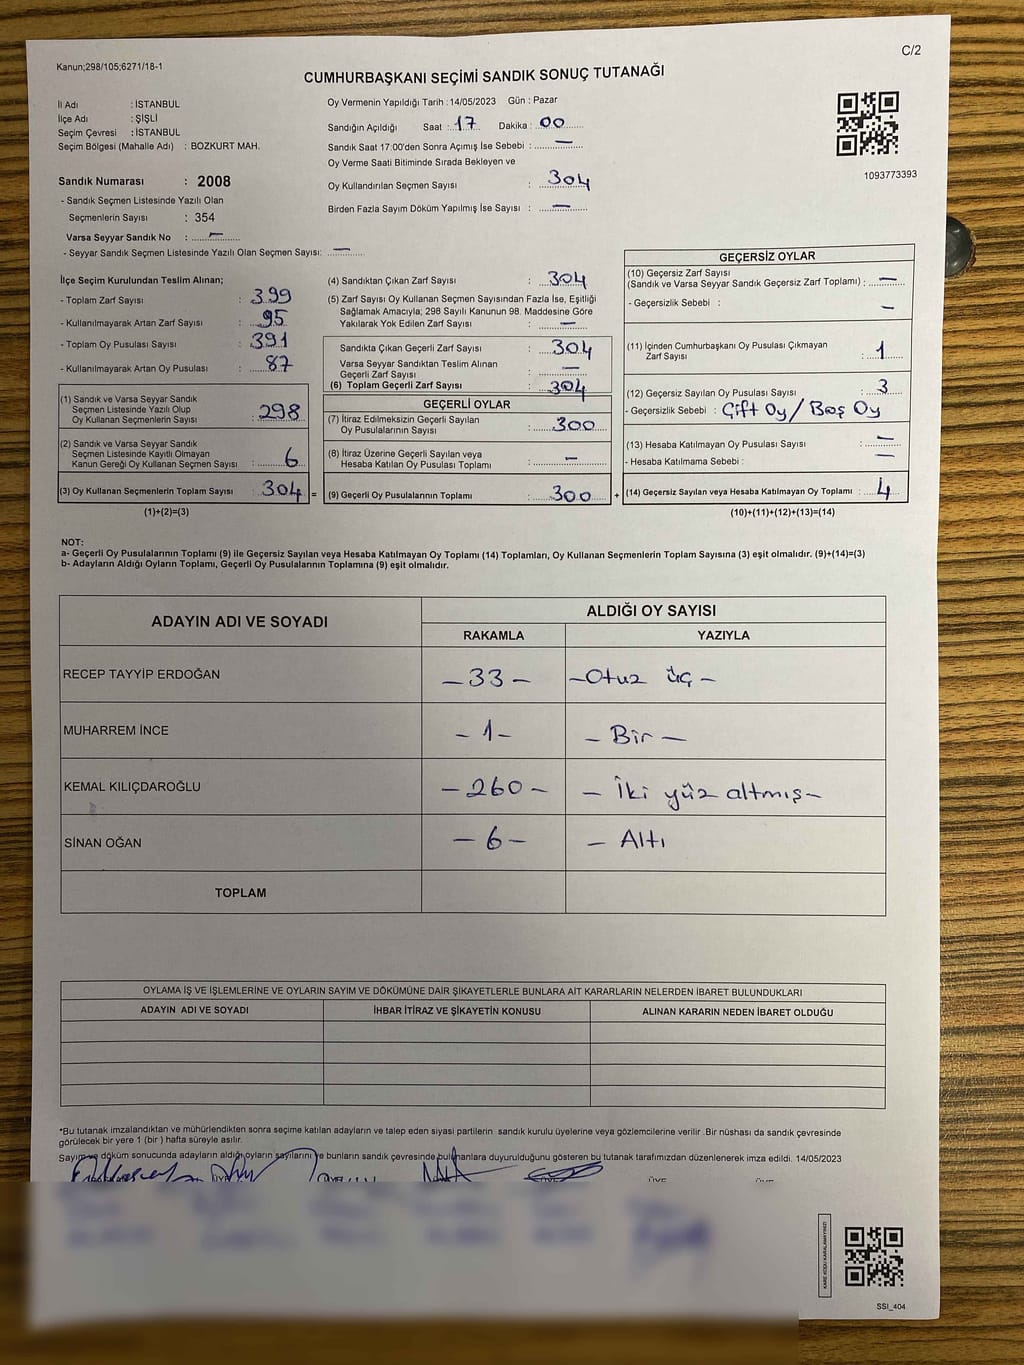 Kanun;298/105;6271/18-1
C/2
CUMHURBAŞKANI SEÇİMİ SANDIK SONUÇ TUTANAĞI
İl Adı : İSTANBUL
İlçe Adı : ŞİŞLİ
Seçim Çevresi : İSTANBUL
Seçim Bölgesi (Mahalle Adı) : BOZKURT MAH.
Sandık Numarası : 2008
- Sandık Seçmen Listesinde Yazılı Olan
Seçmenlerin Sayısı : 354
Varsa Seyyar Sandık No : —
- Seyyar Sandık Seçmen Listesinde Yazılı Olan Seçmen Sayısı: —
Oy Vermenin Yapıldığı Tarih :14/05/2023 Gün : Pazar
Sandığın Açıldığı Saat : 17 Dakika : 00
Sandık Saat 17:00'den Sonra Açımış İse Sebebi : —
Oy Verme Saati Bitiminde Sırada Bekleyen ve
Oy Kullandırılan Seçmen Sayısı : 304
Birden Fazla Sayım Döküm Yapılmış İse Sayısı : —
1093773393
İlçe Seçim Kurulundan Teslim Alınan;
- Toplam Zarf Sayısı : 399
- Kullanılmayarak Artan Zarf Sayısı : 95
- Toplam Oy Pusulası Sayısı : 391
- Kullanılmayarak Artan Oy Pusulası : 87
(1) Sandık ve Varsa Seyyar Sandık
Seçmen Listesinde Yazılı Olup
Oy Kullanan Seçmenlerin Sayısı : 298
(2) Sandık ve Varsa Seyyar Sandık
Seçmen Listesinde Kayıtlı Olmayan
Kanun Gereği Oy Kullanan Seçmen Sayısı : 6
(3) Oy Kullanan Seçmenlerin Toplam Sayısı : 304 =
(1)+(2)=(3)
(4) Sandıktan Çıkan Zarf Sayısı : 304
(5) Zarf Sayısı Oy Kullanan Seçmen Sayısından Fazla İse, Eşitliği
Sağlamak Amacıyla; 298 Sayılı Kanunun 98. Maddesine Göre
Yakılarak Yok Edilen Zarf Sayısı : —
Sandıkta Çıkan Geçerli Zarf Sayısı : 304
Varsa Seyyar Sandıktan Teslim Alınan
Geçerli Zarf Sayısı : —
(6) Toplam Geçerli Zarf Sayısı : 304
GEÇERLİ OYLAR
(7) İtiraz Edilmeksizin Geçerli Sayılan
Oy Pusulalarının Sayısı : 300
(8) İtiraz Üzerine Geçerli Sayılan veya
Hesaba Katılan Oy Pusulası Toplamı : —
(9) Geçerli Oy Pusulalarının Toplamı : 300 +
GEÇERSİZ OYLAR
(10) Geçersiz Zarf Sayısı
(Sandık ve Varsa Seyyar Sandık Geçersiz Zarf Toplamı) : —
- Geçersizlik Sebebi : —
(11) İçinden Cumhurbaşkanı Oy Pusulası Çıkmayan
Zarf Sayısı : 1
(12) Geçersiz Sayılan Oy Pusulası Sayısı : 3
- Geçersizlik Sebebi : Çift Oy / Boş Oy
(13) Hesaba Katılmayan Oy Pusulası Sayısı : —
- Hesaba Katılmama Sebebi : —
(14) Geçersiz Sayılan veya Hesaba Katılmayan Oy Toplamı : 4
(10)+(11)+(12)+(13)=(14)
NOT:
a- Geçerli Oy Pusulalarının Toplamı (9) ile Geçersiz Sayılan veya Hesaba Katılmayan Oy Toplamı (14) Toplamları, Oy Kullanan Seçmenlerin Toplam Sayısına (3) eşit olmalıdır. (9)+(14)=(3)
b- Adayların Aldığı Oyların Toplamı, Geçerli Oy Pusulalarının Toplamına (9) eşit olmalıdır.
ADAYIN ADI VE SOYADI ALDIĞI OY SAYISI
RAKAMLA YAZIYLA
RECEP TAYYİP ERDOĞAN – 33 – – Otuz üç –
MUHARREM İNCE – 1 – – Bir –
KEMAL KILIÇDAROĞLU – 260 – – İki yüz altmış –
SİNAN OĞAN – 6 – – Altı
TOPLAM
OYLAMA İŞ VE İŞLEMLERİNE VE OYLARIN SAYIM VE DÖKÜMÜNE DAİR ŞİKAYETLERLE BUNLARA AİT KARARLARIN NELERDEN İBARET BULUNDUKLARI
ADAYIN ADI VE SOYADI İHBAR İTİRAZ VE ŞİKAYETİN KONUSU ALINAN KARARIN NEDEN İBARET OLDUĞU
*Bu tutanak imzalandıktan ve mühürlendikten sonra seçime katılan adayların ve talep eden siyasi partilerin sandık kurulu üyelerine veya gözlemcilerine verilir .Bir nüshası da sandık çevresinde
görülecek bir yere 1 (bir ) hafta süreyle asılır.
Sayım ve döküm sonucunda adayların aldığı oyların sayılarını ve bunların sandık çevresinde bulunanlara duyurulduğunu gösteren bu tutanak tarafımızdan düzenlenerek imza edildi. 14/05/2023
ÜYE ÜYE
KARE KODU KARALAMAYINIZ!
SSI_404